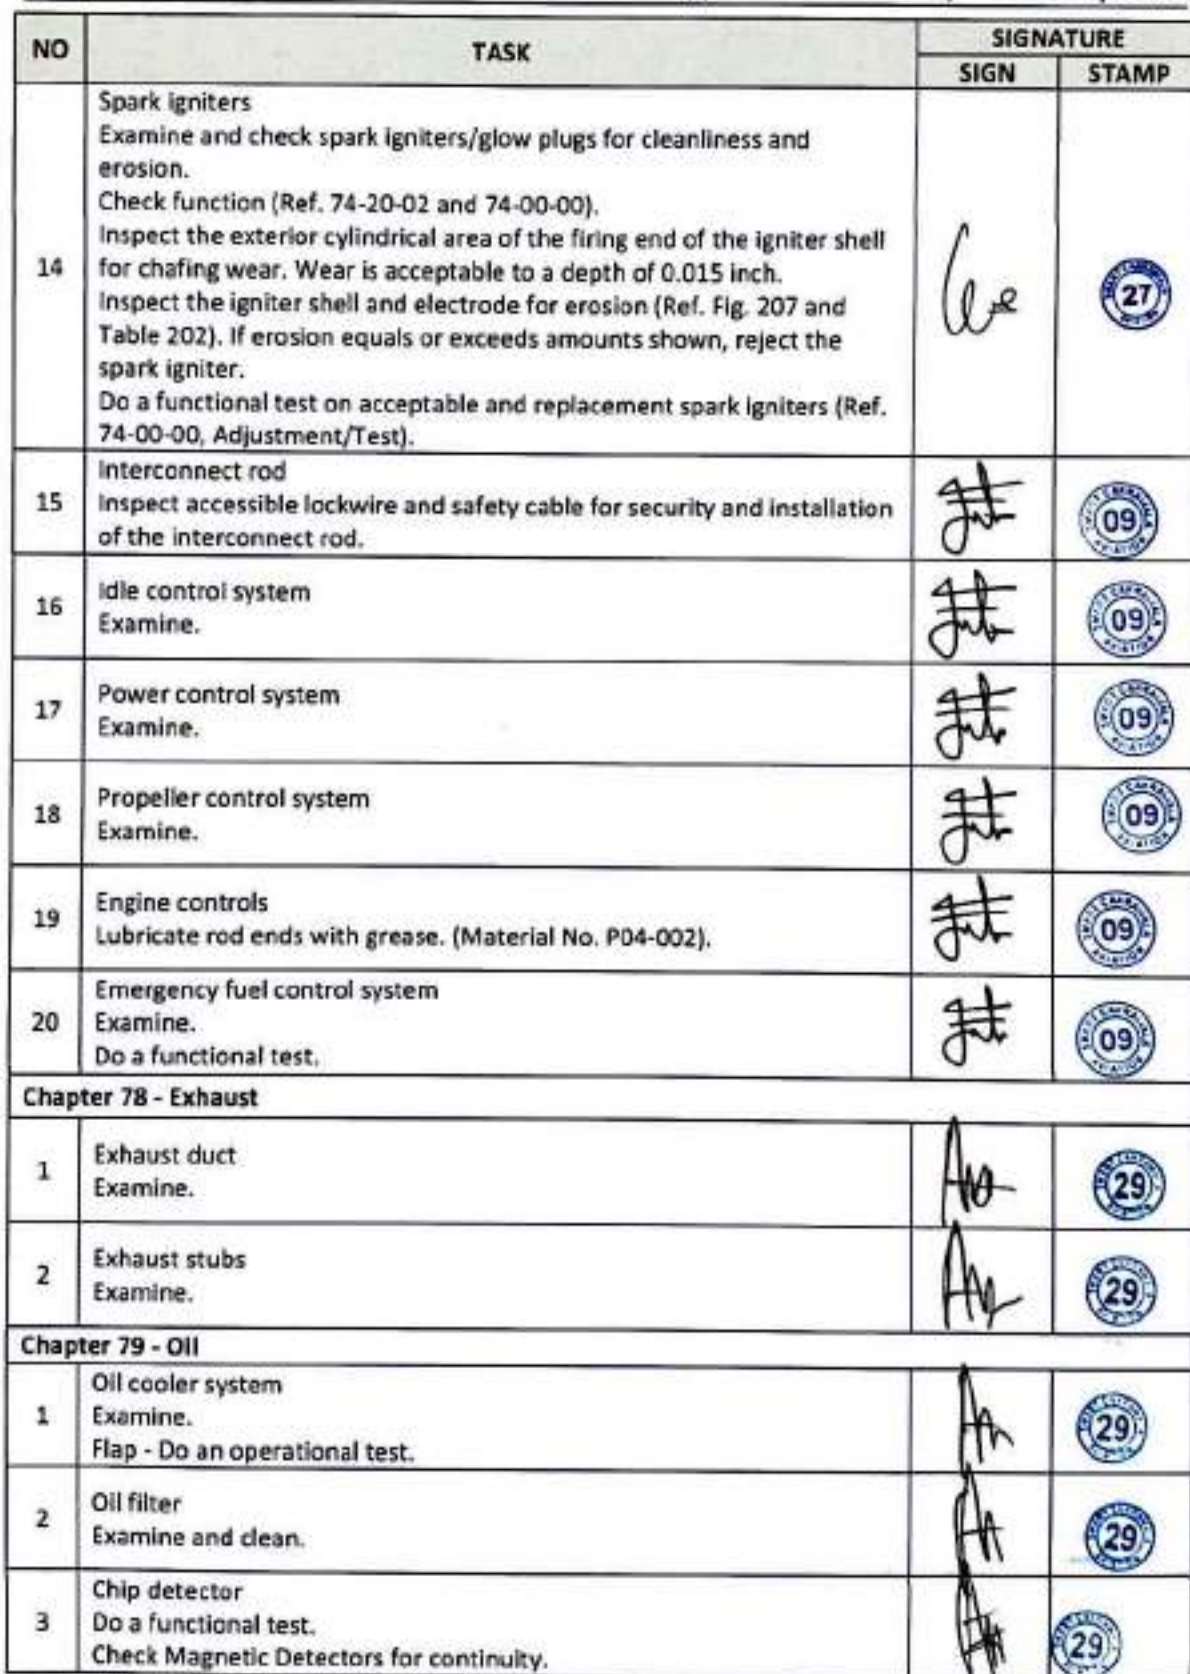 NO TASK SIGNATURE
SIGN STAMP
Spark igniters
Examine and check spark igniters/glow plugs for cleanliness and
erosion.
Check function (Ref. 74-20-02 and 74-00-00).
Inspect the exterior cylindrical area of the firing end of the igniter shell
14 for chafing wear. Wear is acceptable to a depth of 0.015 inch. 27
Inspect the igniter shell and electrode for erosion (Ref. Fig. 207 and
Table 202). If erosion equals or exceeds amounts shown, reject the
spark igniter.
Do a functional test on acceptable and replacement spark igniters (Ref.
74-00-00, Adjustment/Test).
Interconnect rod
15 Inspect accessible lockwire and safety cable for security and installation 09
of the interconnect rod.
16 Idle control system 09
Examine.
17 Power control system 09
Examine.
18 Propeller control system 09
Examine.
19 Engine controls 09
Lubricate rod ends with grease. (Material No. P04-002).
Emergency fuel control system
20 Examine. 09
Do a functional test.
Chapter 78 - Exhaust
1 Exhaust duct 29
Examine.
2 Exhaust stubs 29
Examine.
Chapter 79 - Oil
Oil cooler system
1 Examine. 29
Flap - Do an operational test.
2 Oil filter 29
Examine and clean.
Chip detector
3 Do a functional test. 29
Check Magnetic Detectors for continuity.